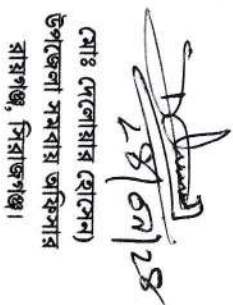 ২৪/০৭/২৪
(মোঃ দেলোয়ার হোসেন)
উপজেলা সমবায় অফিসার
রায়গঞ্জ, সিরাজগঞ্জ।